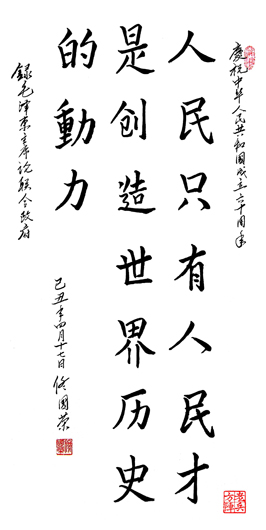 慶祝中华人民共和國成立六十周年
人民只有人民才
是创造世界历史
的動力
録毛泽东主席论联合政府
己丑年四月十七日 佟國荣